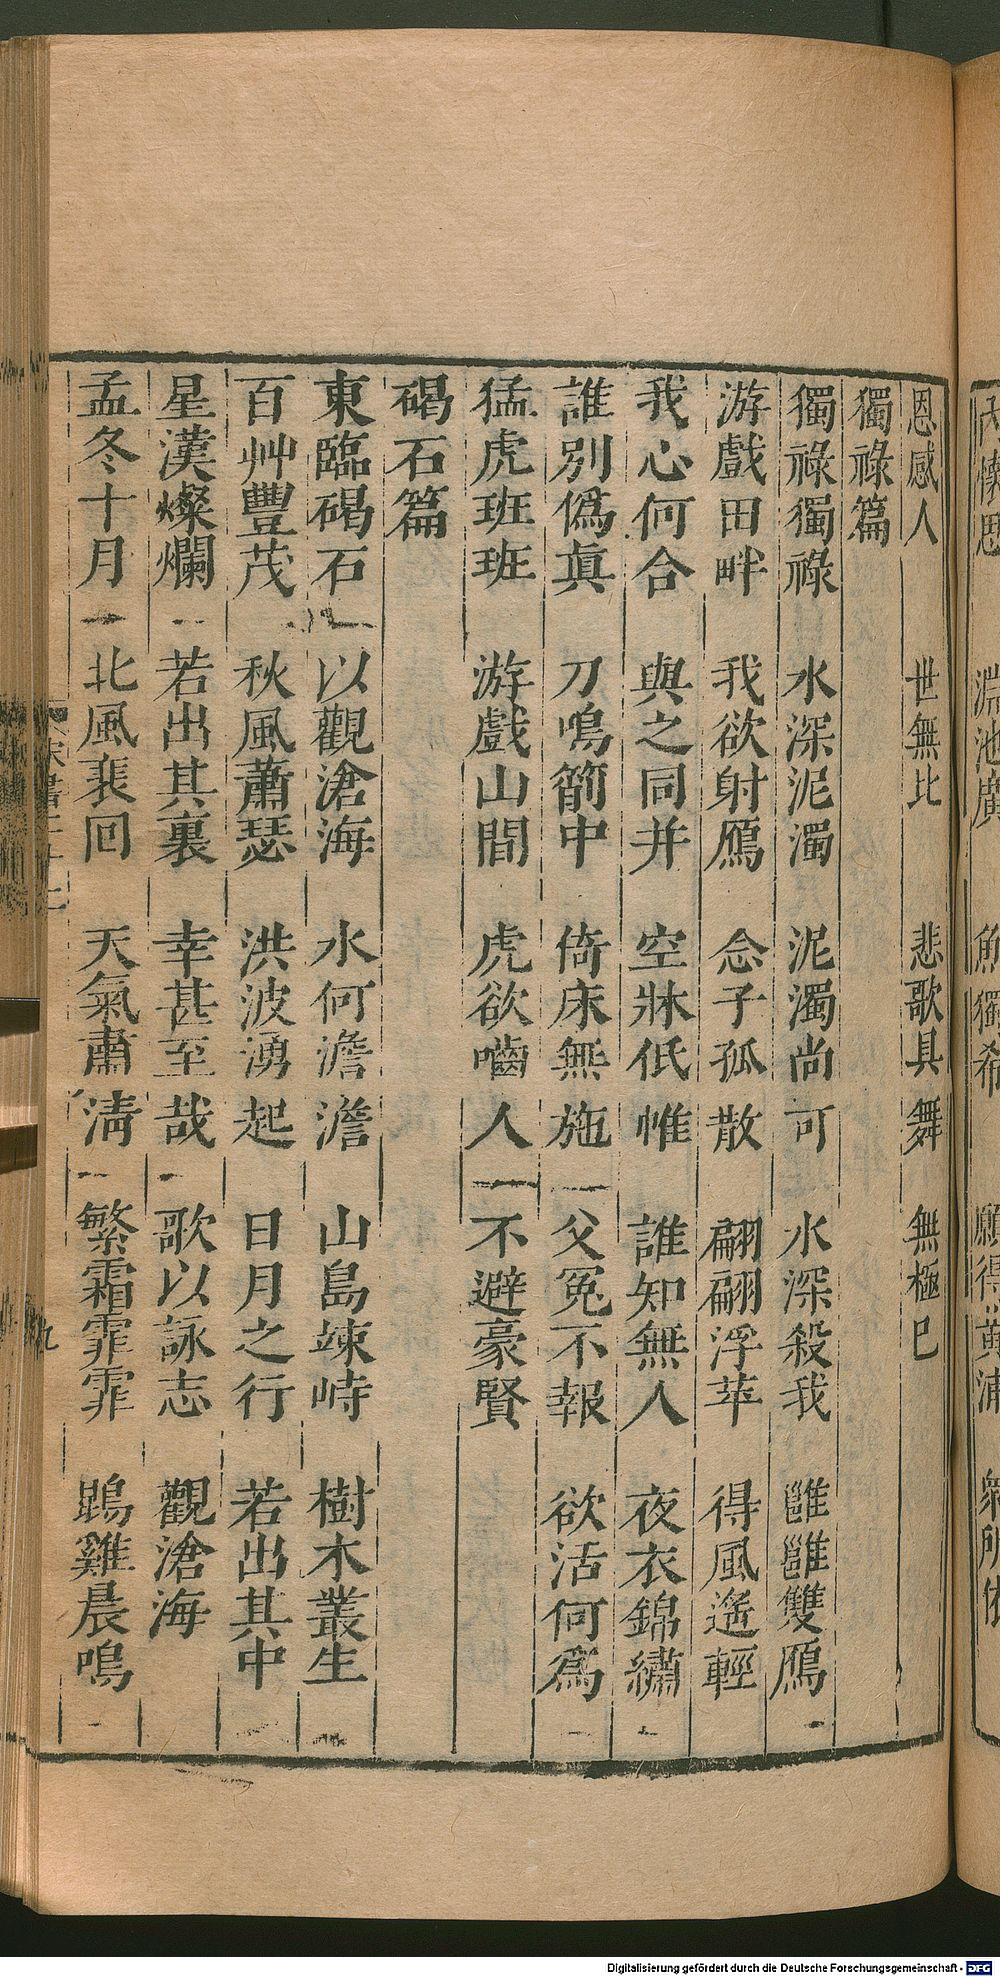 恩感人　世無比　悲歌具舞　無極已
獨祿篇
獨祿獨祿　水深泥濁　泥濁尚可　水深殺我　雝雝雙鴈
游戲田畔　我欲射鴈　念子孤散　翩翩浮苹　得風遥輕
我心何合　與之同并　空牀低帷　誰知無人　夜衣錦繡
誰別僞真　刀鳴箾中　倚床無施　父冤不報　欲活何爲
猛虎班班　游戲山間　虎欲嚙人　不避豪賢
碣石篇
東臨碣石　以觀滄海　水何澹澹　山島竦峙　樹木叢生
百艸豐茂　秋風蕭瑟　洪波湧起　日月之行　若出其中
星漢燦爛　若出其裏　幸甚至哉　歌以詠志　觀滄海
孟冬十月　北風裴回　天氣肅淸　繁霜霏霏　鵾雞晨鳴
九
Digitalisierung gefördert durch die Deutsche Forschungsgemeinschaft - DFG